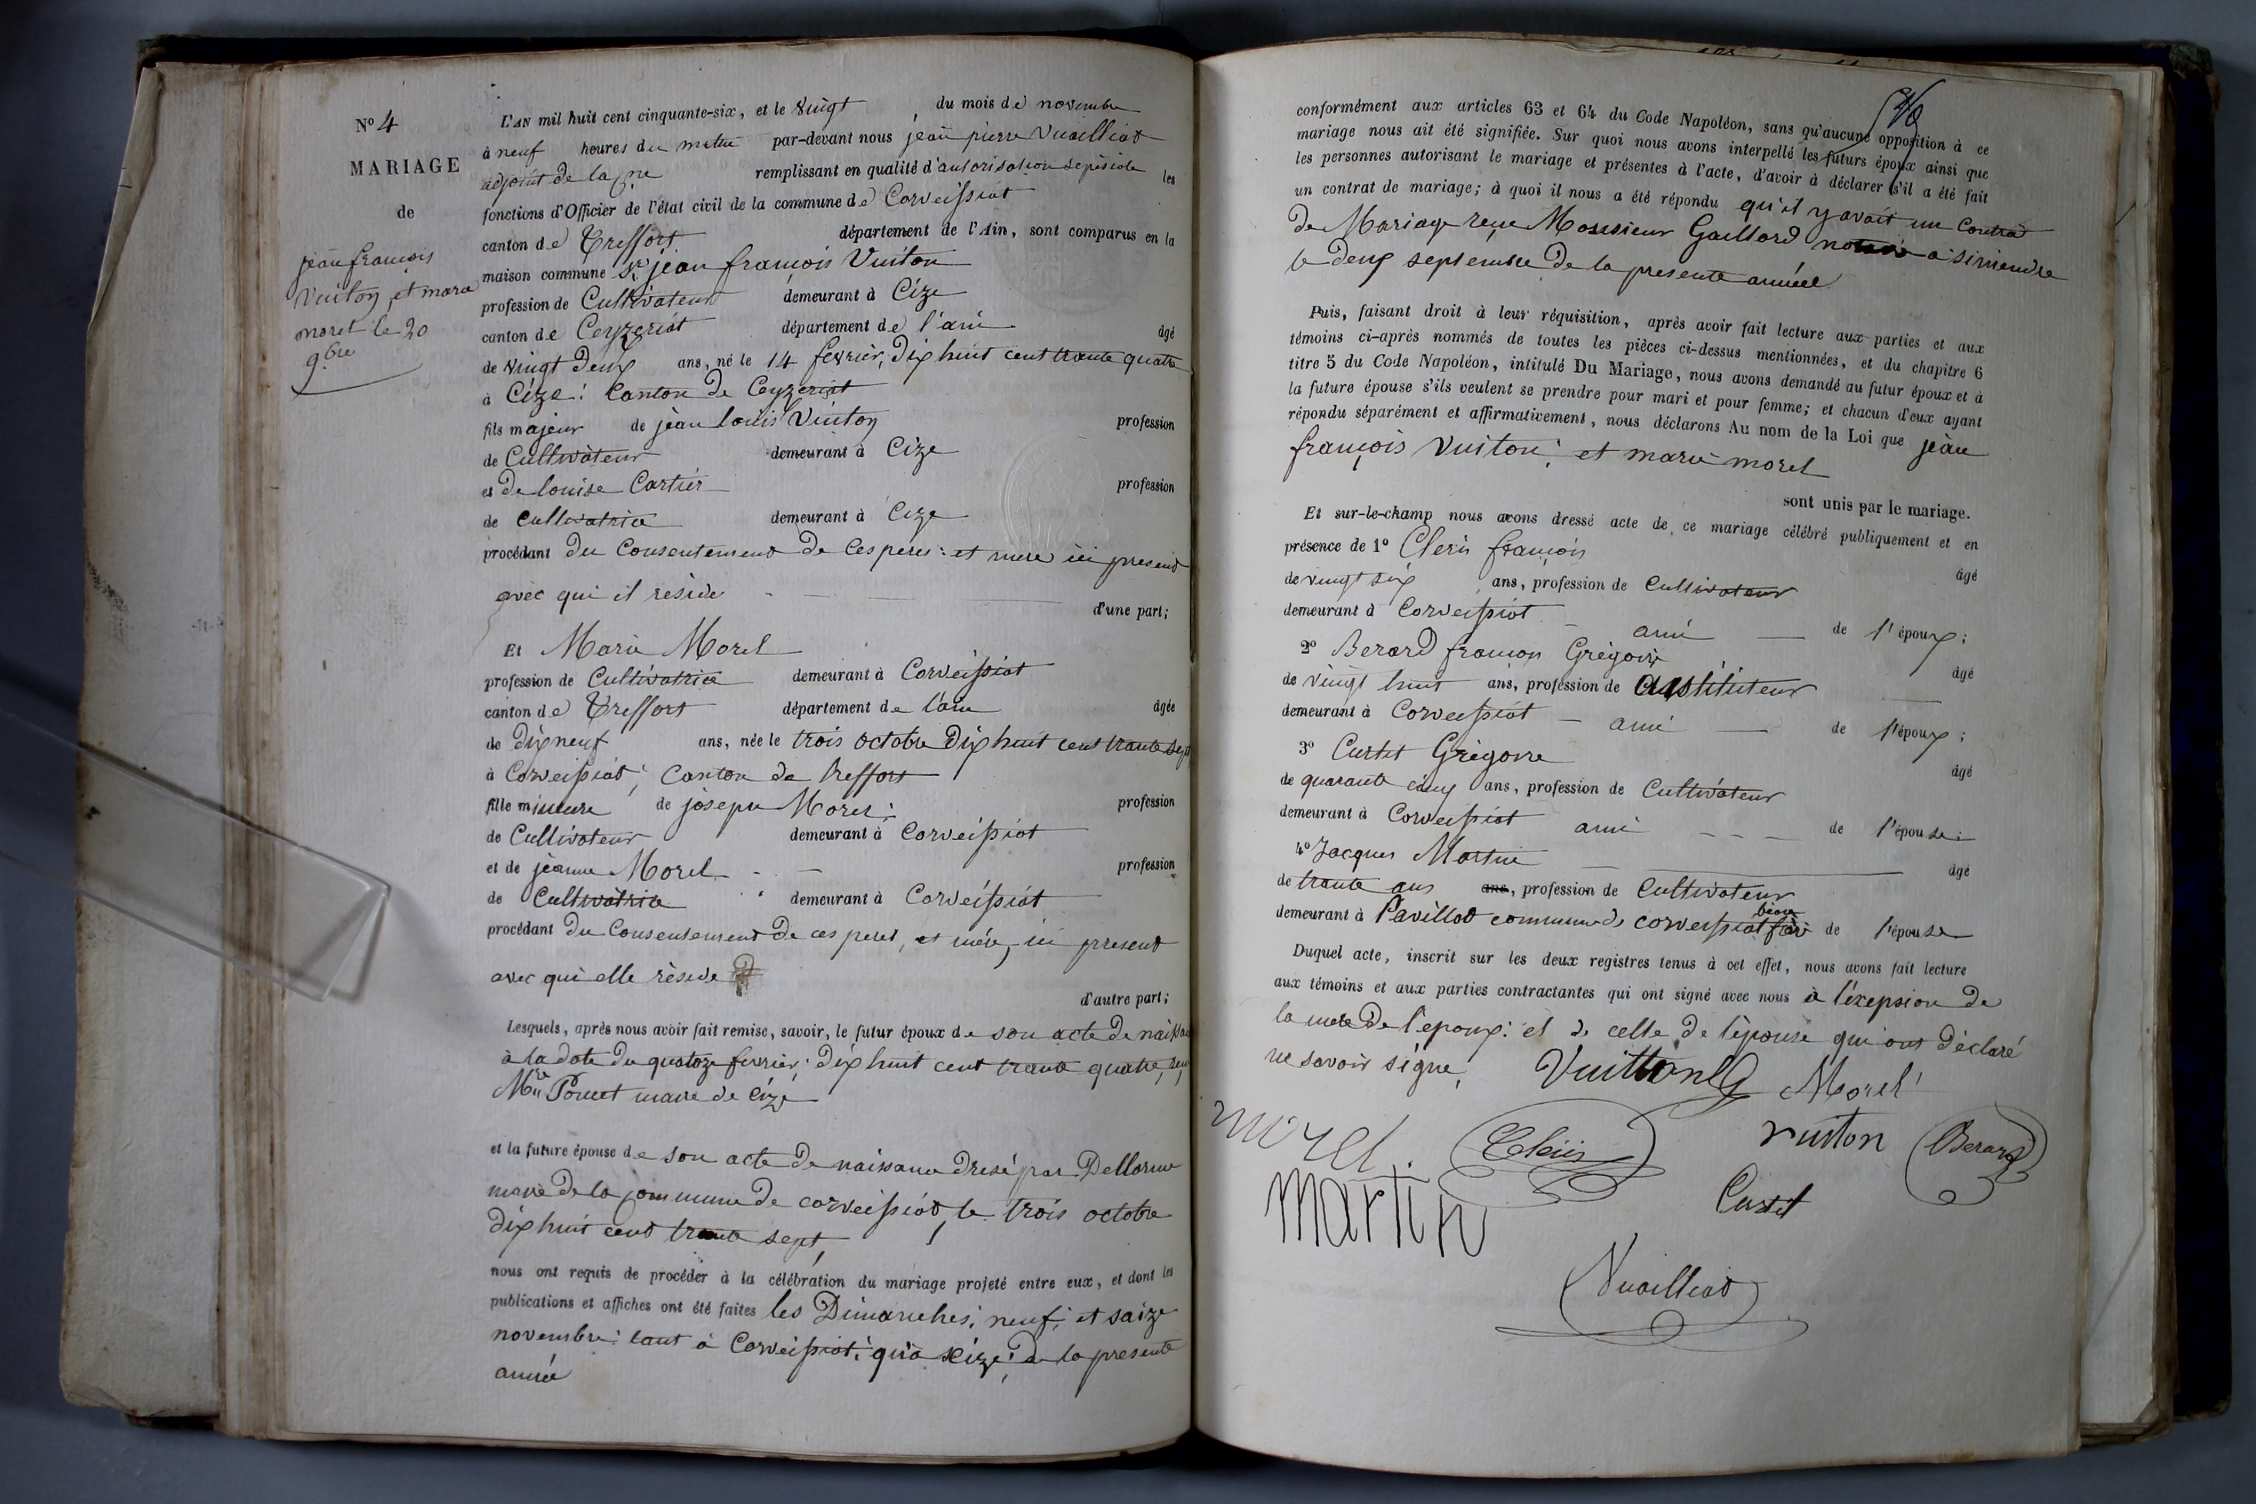 N° 4
MARIAGE
de
jean francois
Vuiton et marie
morel le 20
9bre
L'AN mil huit cent cinquante-six, et le vingt du mois de novembre
à neuf heures du matin par-devant nous jean pierre Vuailliat
adjoint de la remplissant en qualité d'autorisation spéciale les
fonctions d'Officier de l'état civil de la commune de Corveissiat
canton de Treffort département de l'Ain, sont comparus en la
maison commune Sr jean francois Vuiton
profession de Cultivateur demeurant à Cize
canton de Ceyzeriat département de l'ain âgé
de vingt deux ans, né le 14 fevrier, dix huit cent trante quatre
à Cize: Canton de Ceyzeriat
fils majeur de jean louis Vuiton profession
de Cultivateur demeurant à Cize
et de louise Cartier profession
de cultivatrice demeurant à Cize
procédant du Consentement de Ces peres: et mere ici present
avec qui il reside d'une part;
Et Marie Morel
profession de Cultivatrice demeurant à Corveissiat
canton de Treffort département de l'ain âgée
de dix neuf ans, née le trois octobre dix huit cent trante sept
à Corveissiat; Canton de treffort
fille mineure de joseph Morel: profession
de Cultivateur demeurant à Corveissiat
et de jeanne Morel profession
de Cultivatrice demeurant à Corveissiat
procédant du Consentement de ces peres, et mére, ici present
avec qui elle réside
d'autre part;
Lesquels, après nous avoir fait remise, savoir, le futur époux de son acte de naissance
à la date du quatoze fevrier: dix huit cent trante quatre,
Poncet maire de Cizé
et la future épouse de son acte de naissance dresé par Dellorme
maire de la commune de corveissiat, le trois octobre
dix huit cent trante sept,
nous ont requis de procéder à la célébration du mariage projeté entre eux, et dont les
publications et affiches ont été faites les Dimanches: neuf: et saize
novembre: tant à Corveissiat: qu'à cize: de la presente
année
conformément aux articles 63 et 64 du Code Napoléon, sans qu'aucune opposition à ce
mariage nous ait été signifiée. Sur quoi nous avons interpellé les futurs époux ainsi que
les personnes autorisant le mariage et présentes à l'acte, d'avoir à déclarer s'il a été fait
un contrat de mariage; à quoi il nous a été répondu qu'il y avait un Contrat
de Mariage reçu Monsieur Gaillard notaire a simendre
le deux septembre de la presente année
Puis, faisant droit à leur réquisition, après avoir fait lecture aux parties et aux
témoins ci-après nommés de toutes les pièces ci-dessus mentionnées, et du chapitre 6
titre 5 du Code Napoléon, intitulé Du Mariage, nous avons demandé au futur époux et à
la future épouse s'ils veulent se prendre pour mari et pour femme; et chacun d'eux ayant
répondu séparément et affirmativement, nous déclarons Au nom de la Loi que jean
françois Vuiton: et marie morel
sont unis par le mariage.
Et sur-le-champ nous avons dressé acte de ce mariage célébré publiquement et en
présence de 1° Cleris françois âgé
de vingt six ans, profession de Cultivateur
demeurant à Corveissiat ami de l'époux;
2° Berard francois Grégoire âgé
de vingt huit ans, profession de institiuteur
demeurant à Corveissiat ami de l'époux;
3° Curtet Grégoire âgé
de quarante cinq ans, profession de Cultivateur
demeurant à Corveissiat ami de l'épouse:
4° Jacques Martin âgé
de trante ans ans, profession de Cultivateur
demeurant à Pavillod commune de corveissiat beau frère de l'épouse
Duquel acte, inscrit sur les deux registres tenus à cet effet, nous avons fait lecture
aux témoins et aux parties contractantes qui ont signé avec nous à l'éxepsion de
la mere de l'epoux: et de celle de l'épouse qui ont déclaré
ne savoir signé,
Vuitton Morel
morel. Cleris vuiton Berard
martin Curtet
Vuailliat